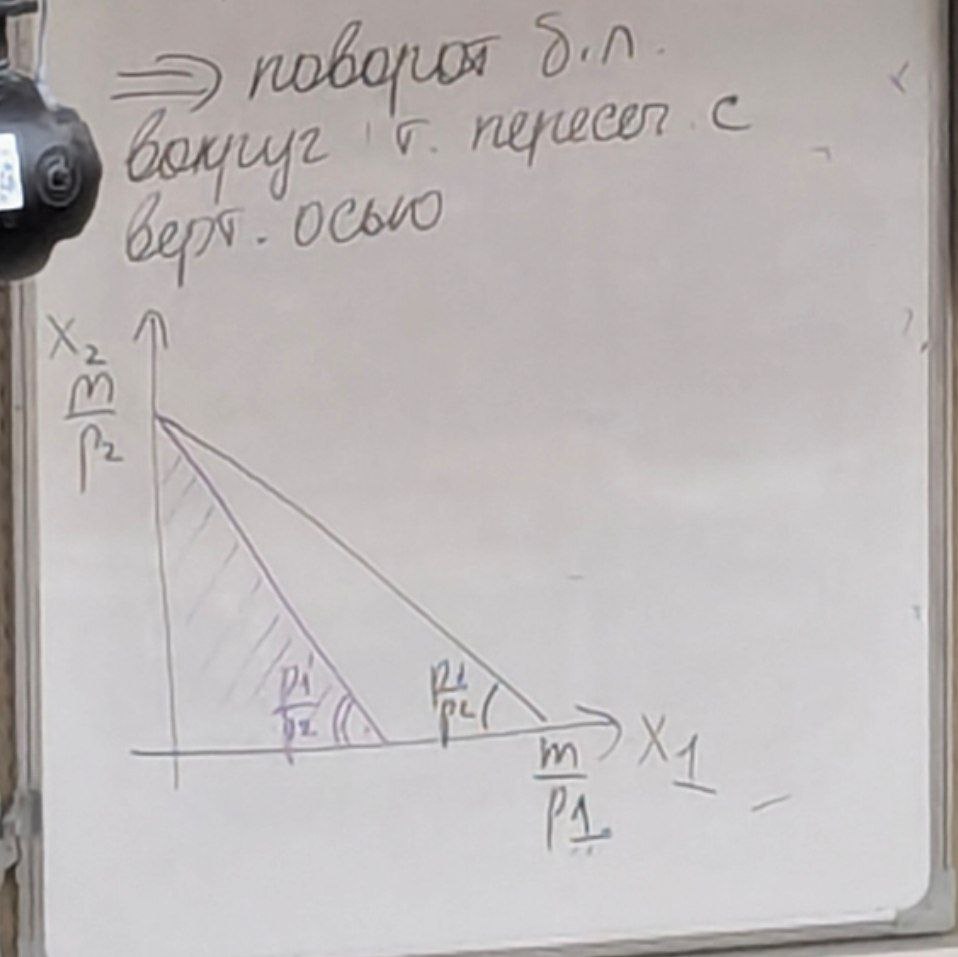 ⇒ поворот б.л.
вокруг т. пересеч. с
верт. осью
x₂
m/p₂
p1'/p2
p1/p2
x1
m/p1